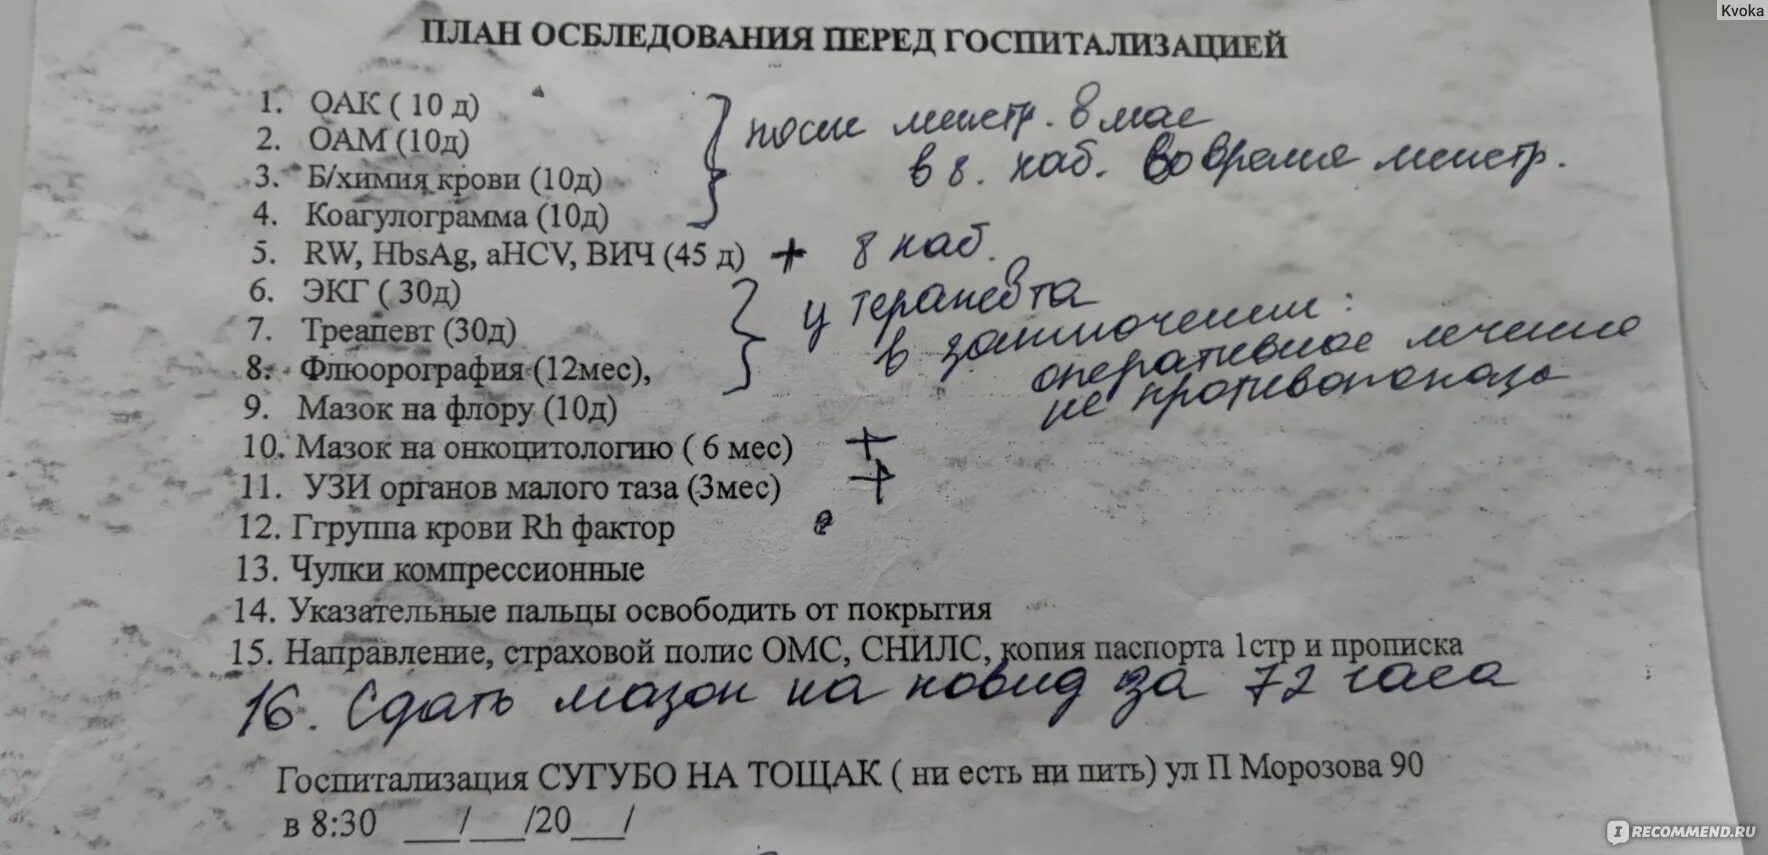 Kvoka
ПЛАН ОСБЛЕДОВАНИЯ ПЕРЕД ГОСПИТАЛИЗАЦИЕЙ
1. ОАК ( 10 д)
2. ОАМ (10д)
3. Б/химия крови (10д)
4. Коагулограмма (10д)
после менстр. в мае
в 8. каб. во время менстр.
5. RW, HbsAg, aHCV, ВИЧ (45 д) + 8 каб.
6. ЭКГ ( 30д)
7. Треапевт (30д)
8. Флюорография (12мес),
у терапевта
в заключении:
оперативное лечение
не противопоказа
9. Мазок на флору (10д)
10. Мазок на онкоцитологию ( 6 мес) +
11. УЗИ органов малого таза (3мес) +
12. Ггруппа крови Rh фактор
13. Чулки компрессионные
14. Указательные пальцы освободить от покрытия
15. Направление, страховой полис ОМС, СНИЛС, копия паспорта 1стр и прописка
16. Сдать мазок на ковид за 72 часа
Госпитализация СУГУБО НА ТОЩАК ( ни есть ни пить) ул П Морозова 90
в 8:30 ___/___/20___/
IRECOMMEND.RU